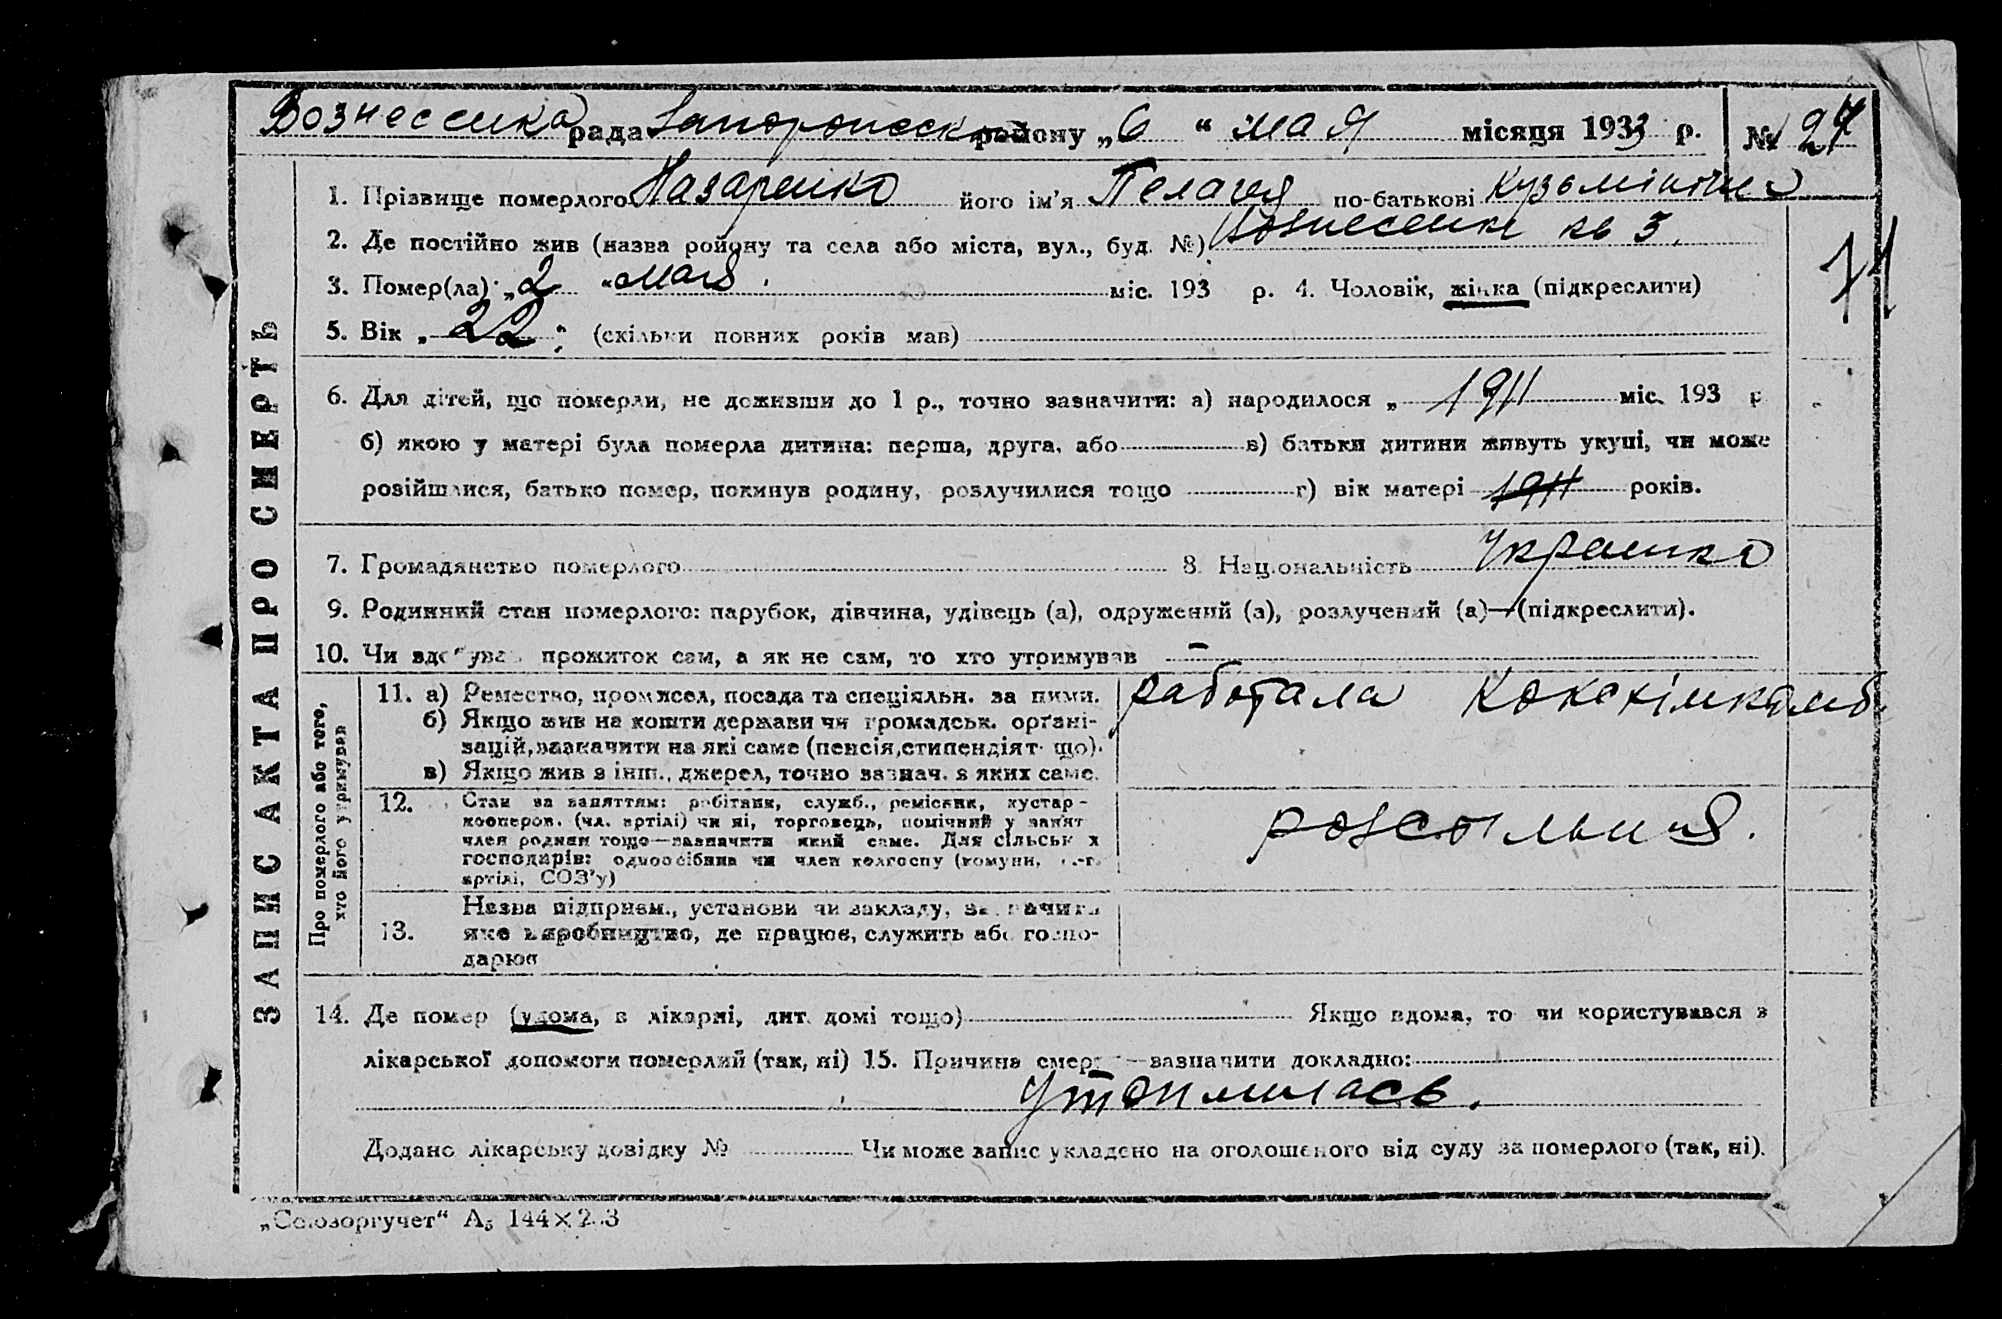 Вознесенка рада Запорожск району „6“ мая місяця 1933 р. № 24
1. Прізвище померлого Назаренко його ім'я Пелагея по-батькові Кузьмінічна
2. Де постійно жив (назва ройону та села або міста, вул., буд. №) Вознесенке кв 3.
3. Помер(ла) „2 “ мая міс. 193 р. 4. Чоловік, жінка (підкреслити)
5. Вік „ 22 “ (скільки повних років мав)
6. Для дітей, що померли, не доживши до 1 р., точно зазначити: а) народилося „ 1911 міс. 193 р
б) якою у матері була померла дитина: перша, друга, або в) батьки дитини живуть укупі, чи може
розійшлися, батько помер, покинув родину, розлучилися тощо г) вік матері 1911 років.
7. Громадянство померлого 8. Національність Украинка
9. Родинний стан померлого: парубок, дівчина, удівець (а), одружений (а), розлучений (а)—(підкреслити).
10. Чи здобував прожиток сам, а як не сам, то хто утримував —
ЗАПИС АКТА ПРО СМЕРТЬ
Про померлого або того,
хто його утримував
11. а) Ремество, промисел, посада та спеціяльн. за ними. работала
б) Якщо жив на кошти держави чи громадськ. органі-
зацій, зазначити на які саме (пенсія, стипендіят що).
в) Якщо жив з інш., джерел, точно зазнач. з яких саме.
12. Стан за заняттям: робітник, служб., ремісник, кустар-
кооперов. (чл. артілі) чи ні, торговець, помічний у занят
член родини тощо—зазначити який саме. Для сільськ х
господарів: одноосібник чи член колгоспу (комуни,
артілі, СОЗ'у)
13. Назва підприєм., установи чи закладу, зазначити
яке виробництво, де працює, служить або госпо-
дарює
14. Де помер (удома, в лікарні, дит. домі тощо) Якщо вдома, то чи користувався з
лікарської допомоги померлий (так, ні) 15. Причина смерті—зазначити докладно:
Утопилась.
Додано лікарську довідку № Чи може запис укладено на оголошеного від суду за померлого (так, ні).
„Союзоргучет“ А5 144×2 3